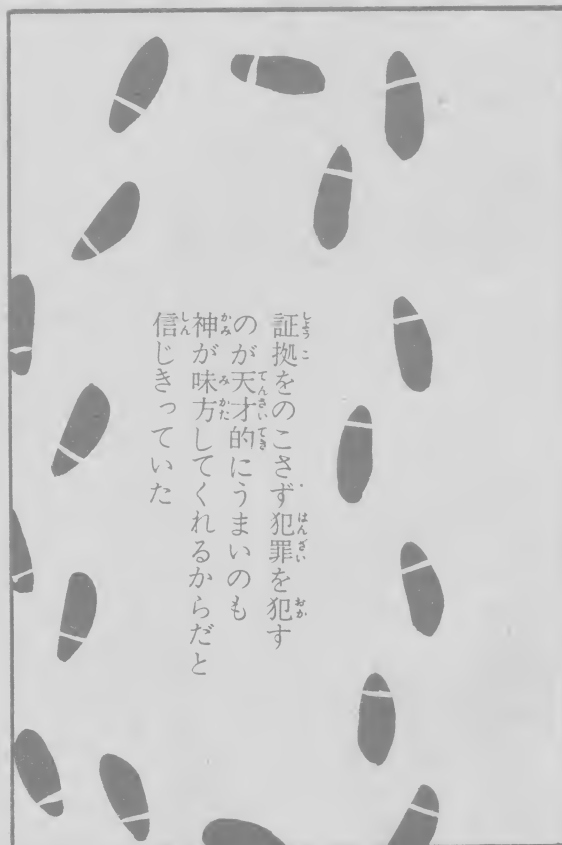 証拠をのこさず犯罪を犯す
のが天才的にうまいのも
神が味方してくれるからだと
信じきっていた